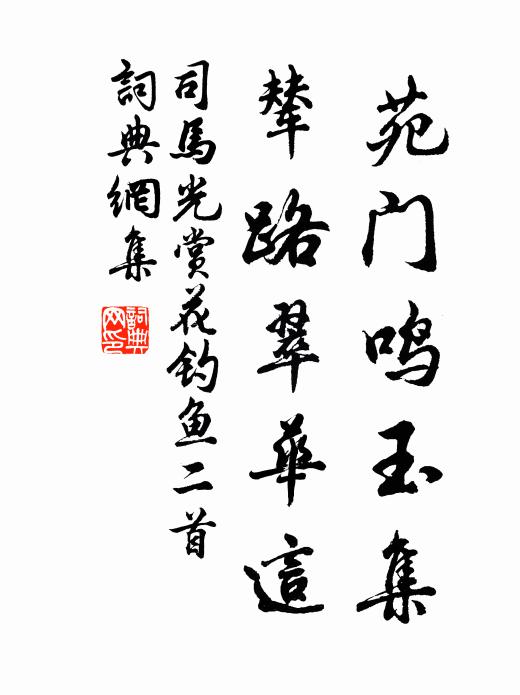 苑门鸣玉集
辇路翠华這
司馬光赏花钓鱼二首
詞典網集
詞典网印